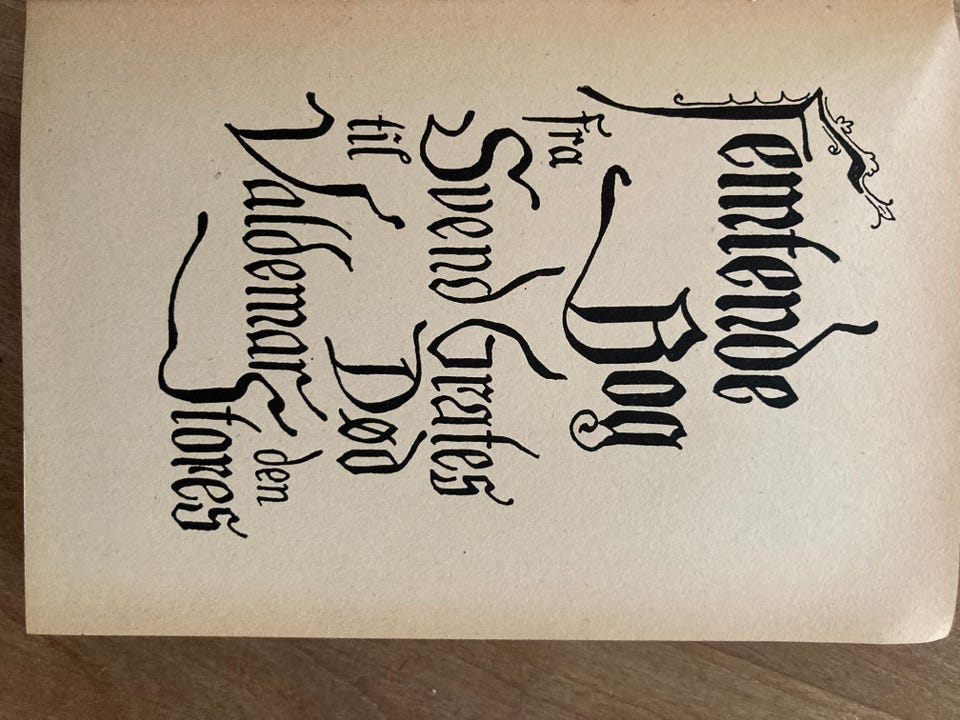 Femtende
Bog
fra
Svend Grates
til Død
Valdemar den
Stores